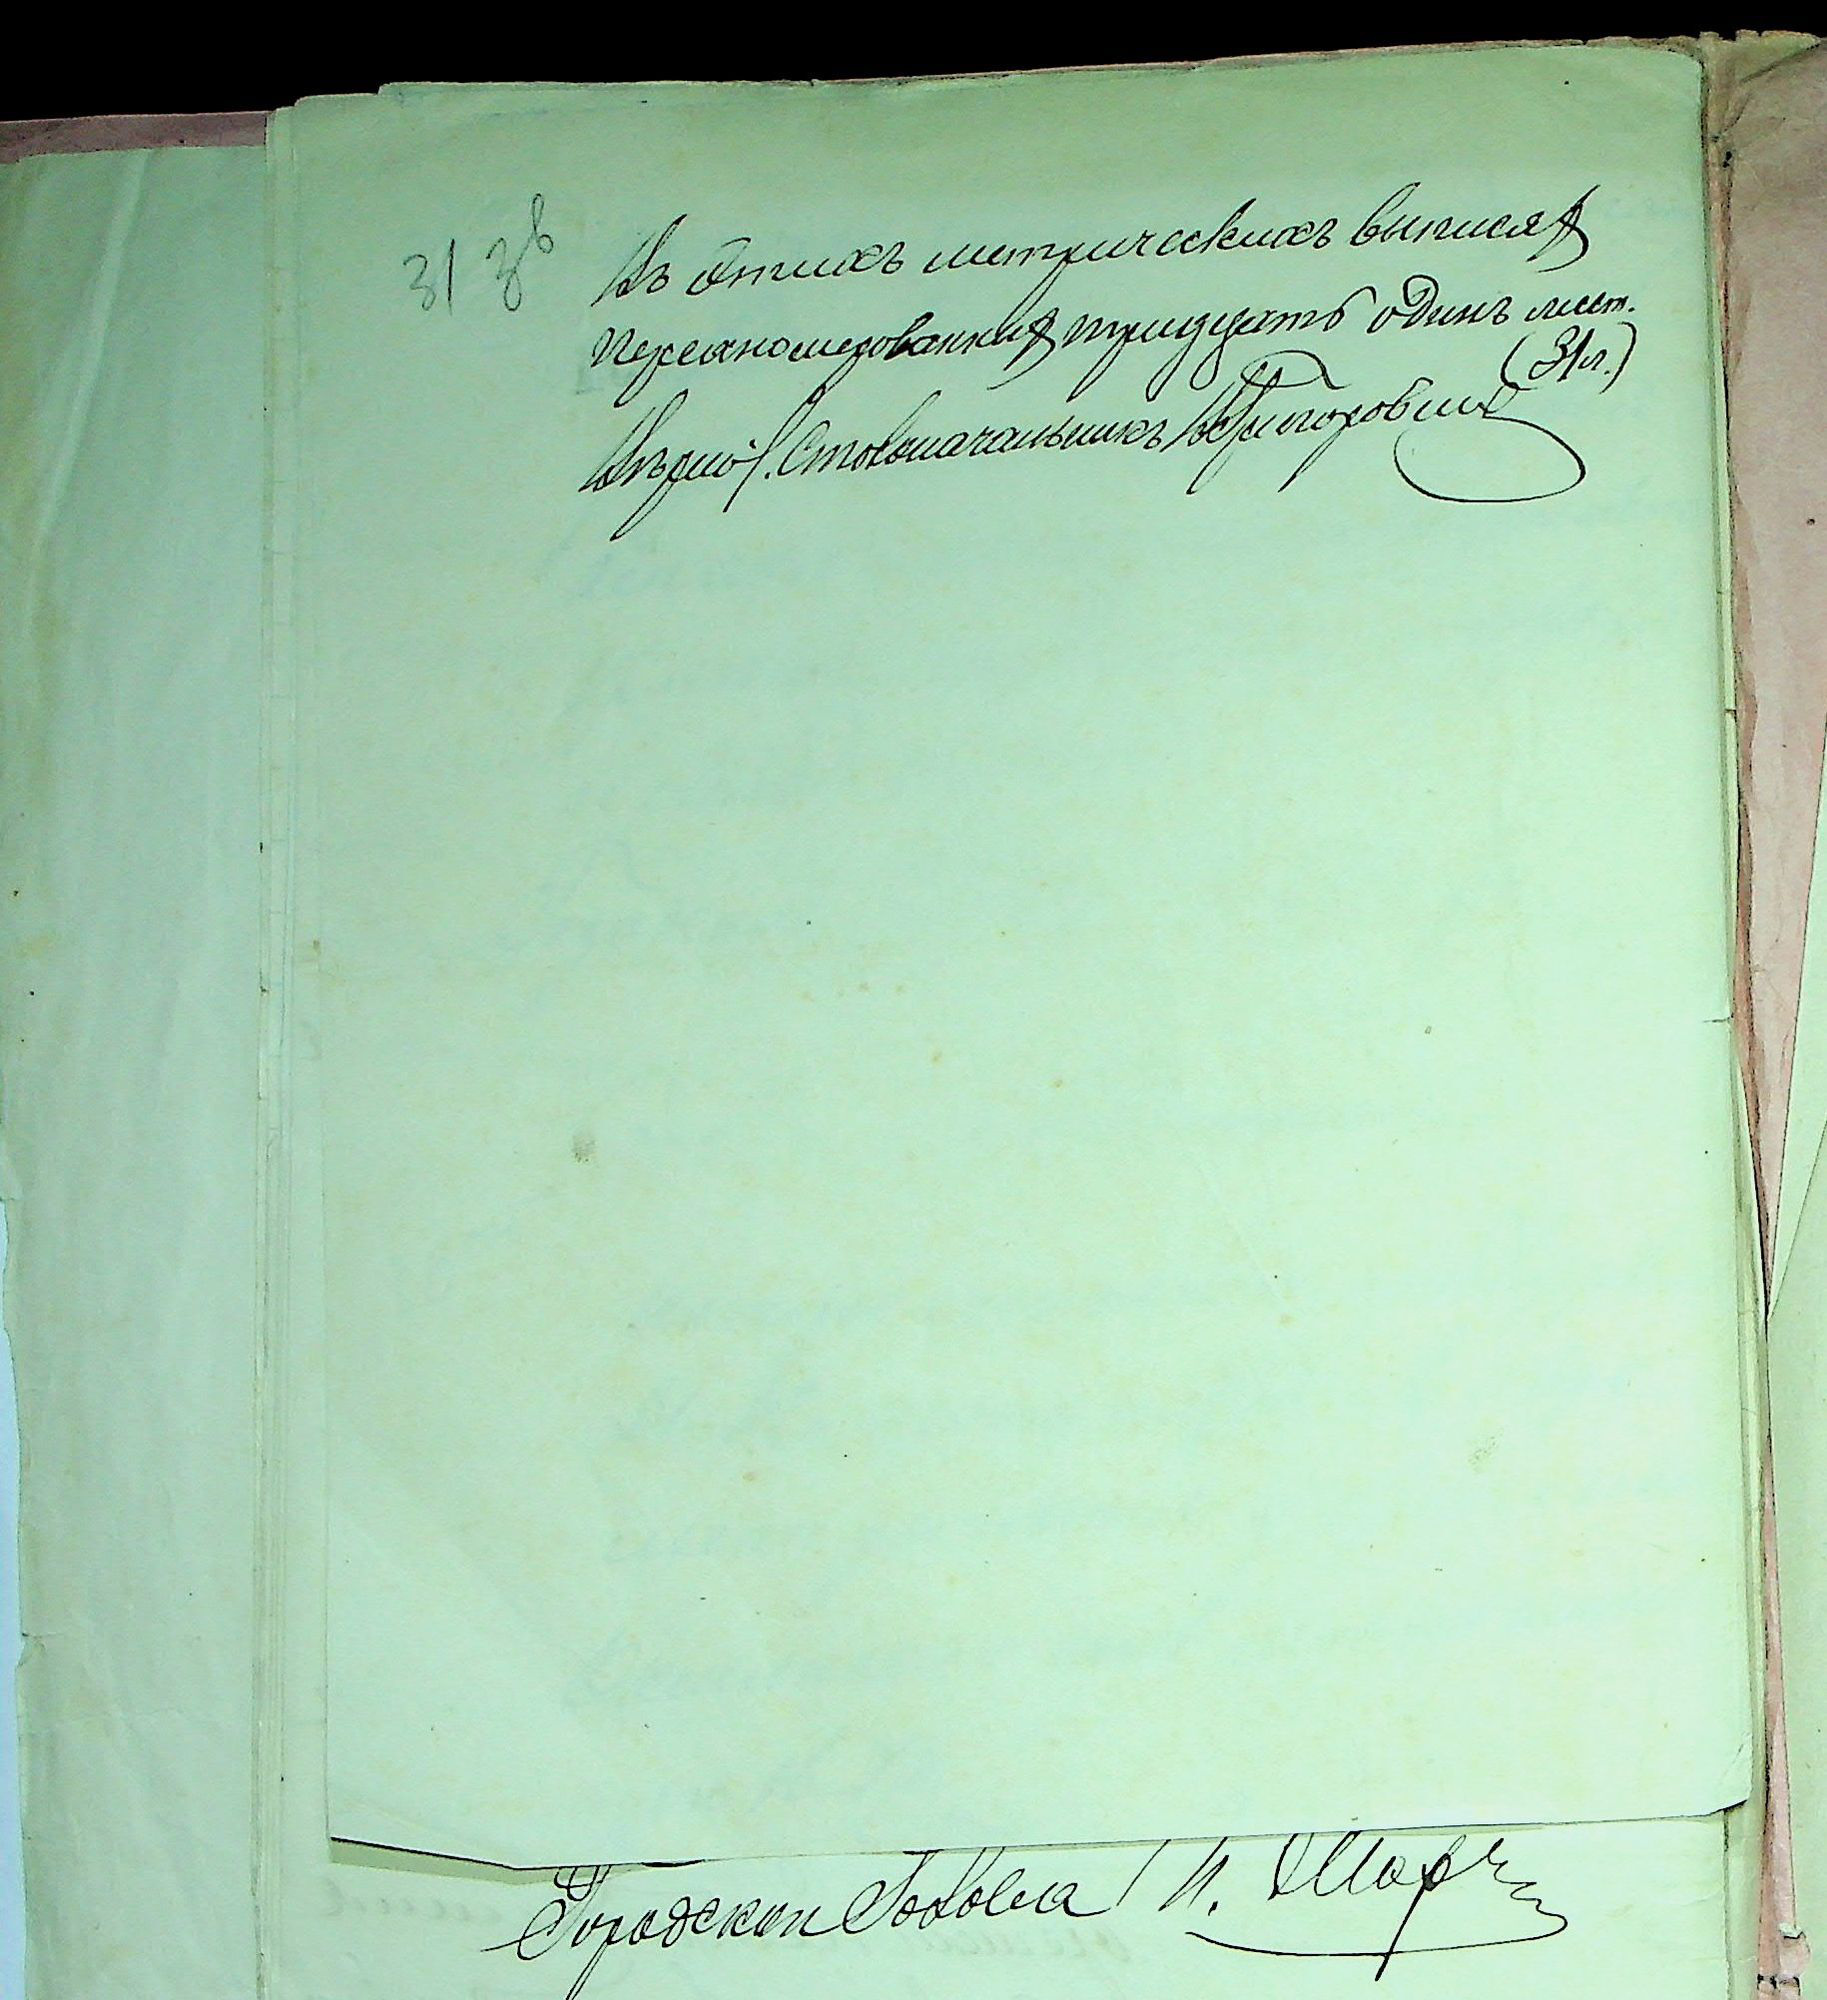 31 Зв
Въ этихъ метрическихъ выписях
перенаномерованных тридцать одинъ лист.
(31 л.)
Вѣрно: Столоначальникъ Григорович
Городской Голова И.